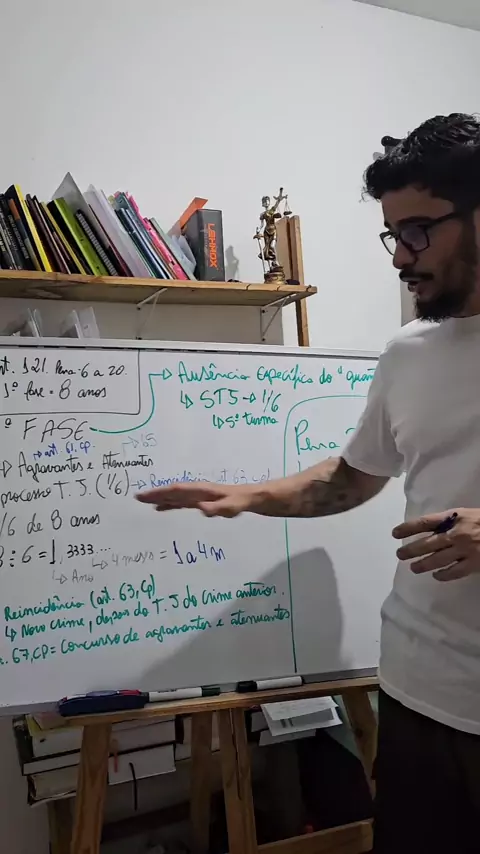 nt. 121. Pena: 6 a 20.
1ª fase = 8 anos
Ausência Específica do "quan
STJ → 1/6
5ª turma
ª FASE
art. 61, CP
→ 65
Agravantes e Atenuantes
processo T. J. (1/6) → Reincidência
67, CP
Pena
1/6 de 8 anos
8 ÷ 6 = 1,3333...
Ano
4 meses = 1a 4m
Reincidência (art. 63, CP)
Novo crime, depois do T. J do crime anterior.
. 67, CP = Concurso de agravantes e atenuantes